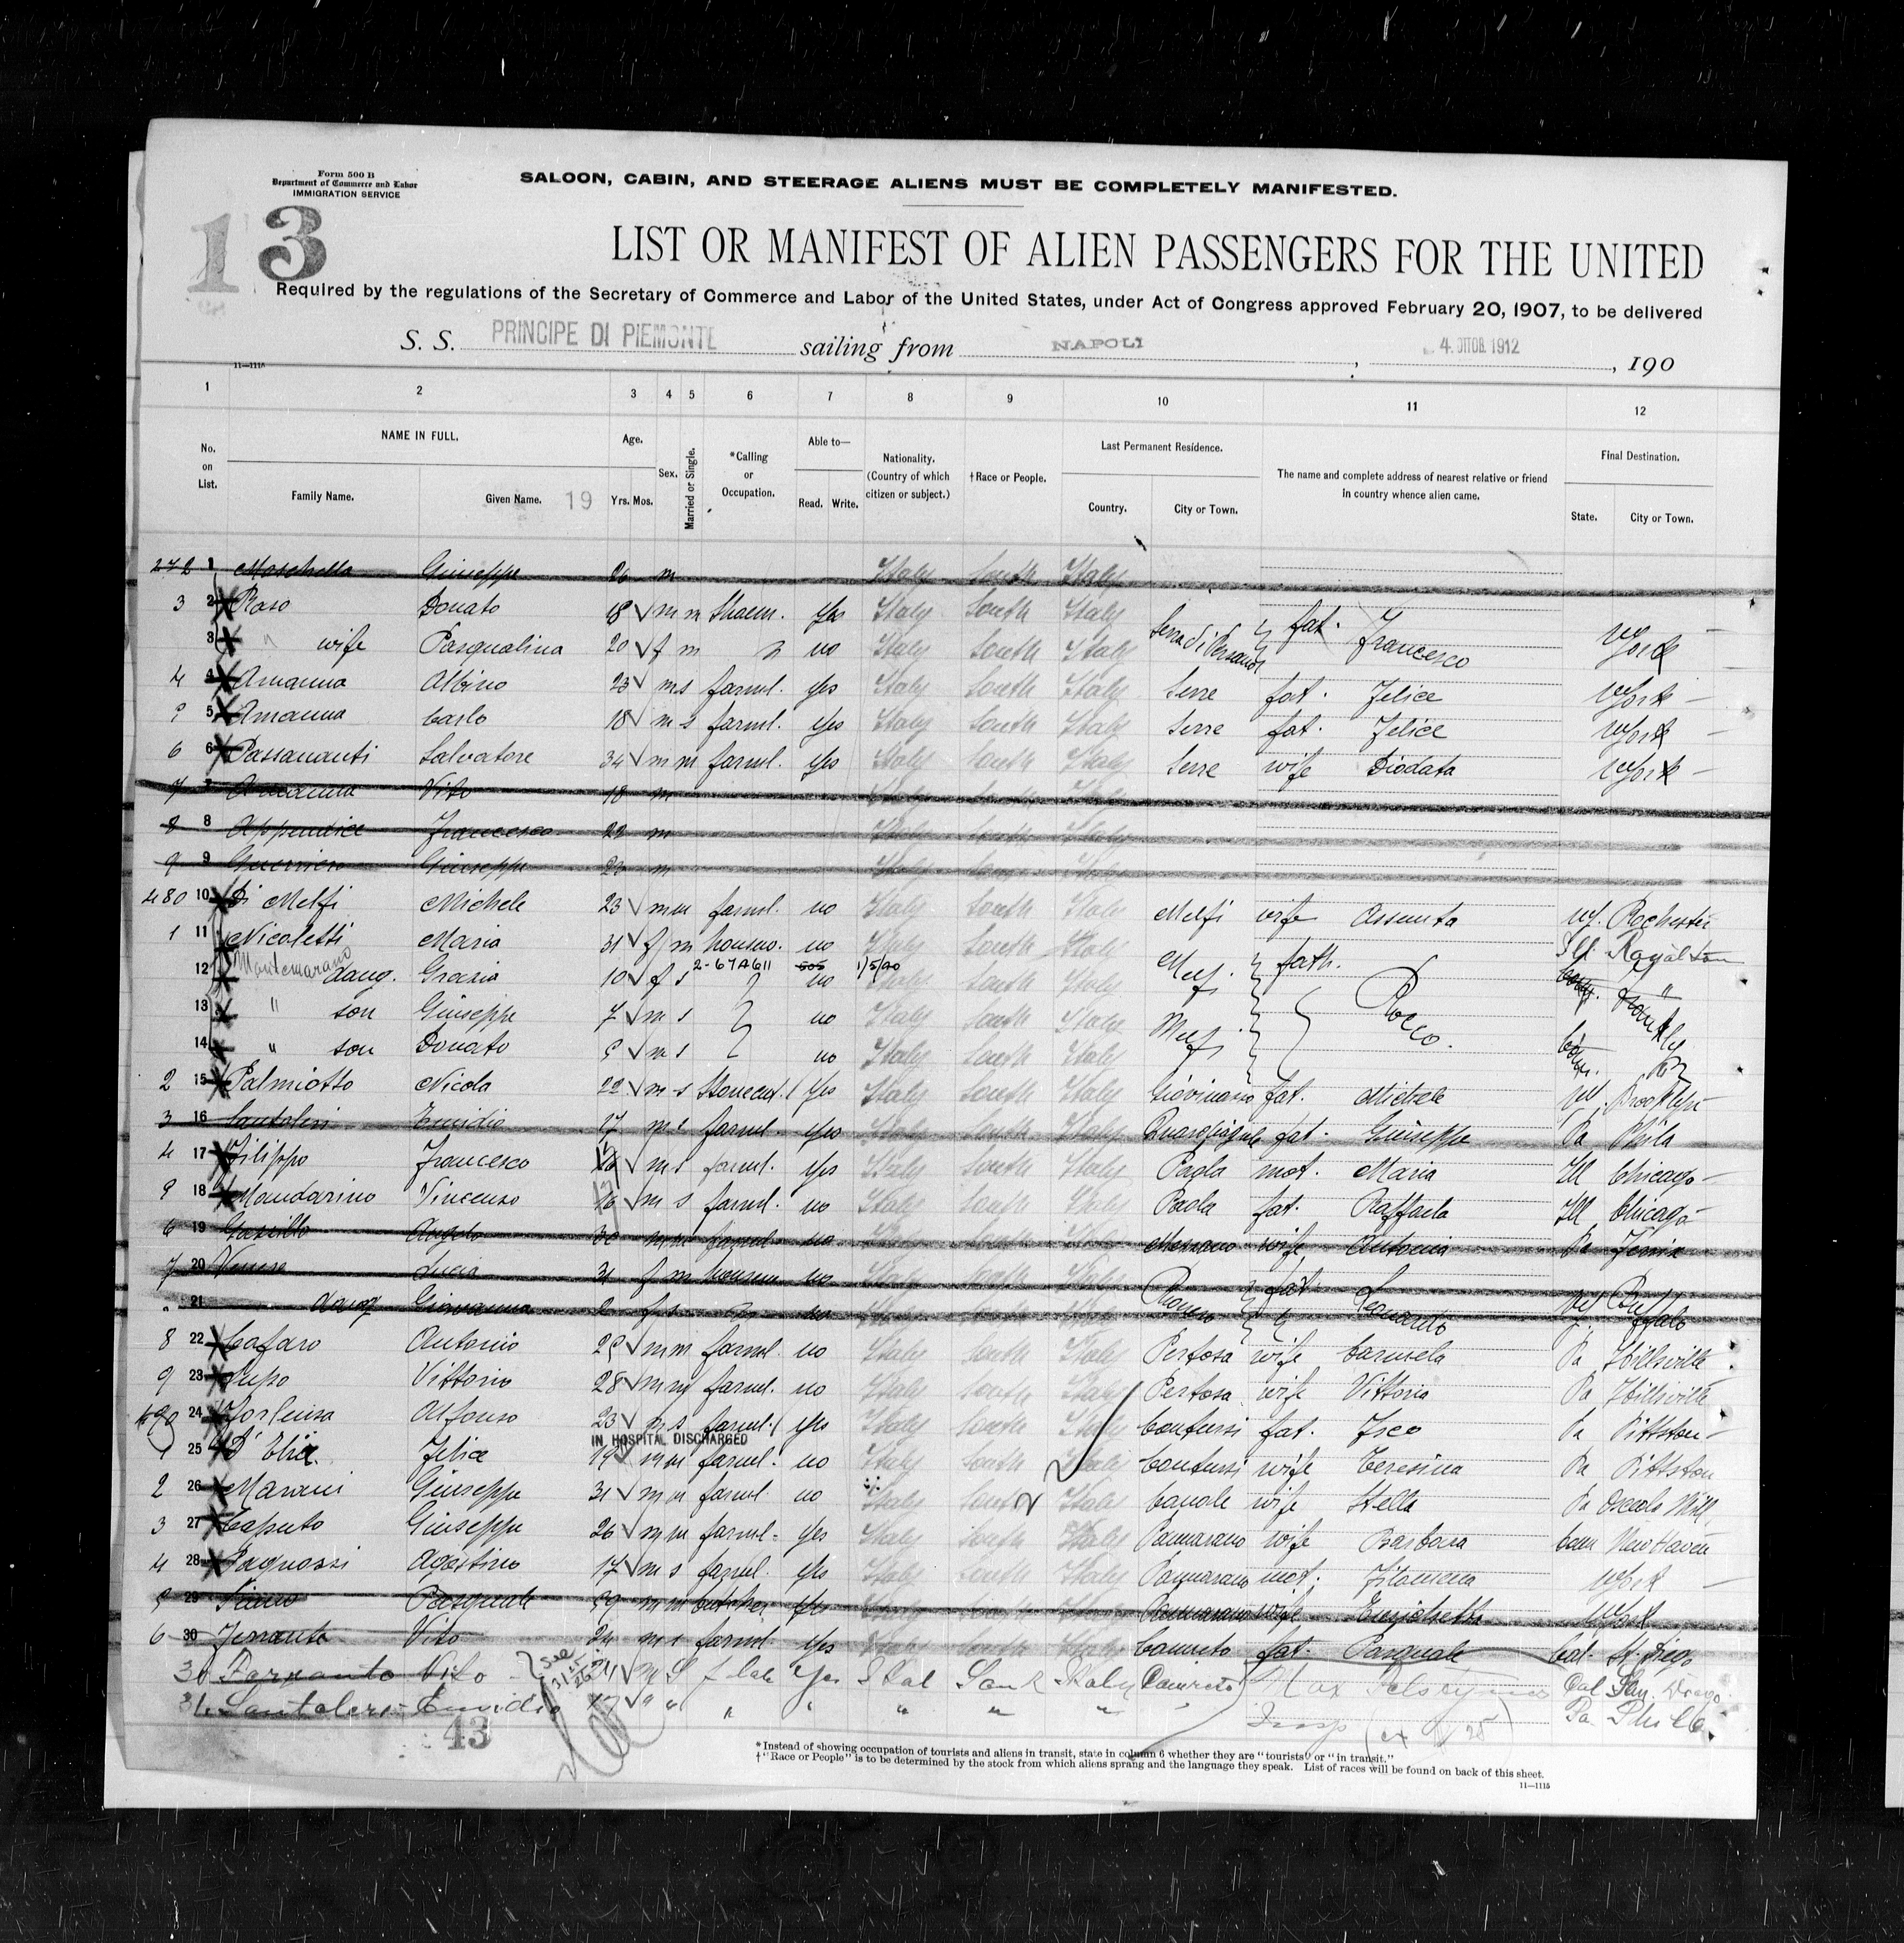 Form 500 B
Department of Commerce and Labor
IMMIGRATION SERVICE
SALOON, CABIN, AND STEERAGE ALIENS MUST BE COMPLETELY MANIFESTED.
13
LIST OR MANIFEST OF ALIEN PASSENGERS FOR THE UNITED
Required by the regulations of the Secretary of Commerce and Labor of the United States, under Act of Congress approved February 20, 1907, to be delivered
S. S. PRINCIPE DI PIEMONTE sailing from NAPOLI, 4. OTTOB. 1912, 190
11—1115
1 2 3 4 5 6 7 8 9 10 11 12
No. on List. NAME IN FULL. Family Name. Given Name. 19 Age. Yrs. Mos. Sex. Married or Single. *Calling or Occupation. Able to— Read. Write. Nationality. (Country of which citizen or subject.) †Race or People. Last Permanent Residence. Country. City or Town. The name and complete address of nearest relative or friend in country whence alien came. Final Destination. State. City or Town.
1 Moschella Giuseppe 26 m Italy South Italy
3 2 Raso Donato 18 m m Yes Italy South Italy fat. Francesco York
3 " wife Pasqualina 20 f m no Italy South Italy
4 4 Amanna Albino 23 m s farml. yes Italy South Italy Serre fat. Felice York
5 Amanna Carlo 18 m s farml. yes Italy South Italy Serre fat. Felice York
6 6 Passananti Salvatore 34 m m farml. yes Italy South Italy Serre wife Diodata York
7 7 Amanna Vito 18 m Italy South Italy
8 8 Appendice Francesco 22 m Italy South Italy
9 9 Guerriero Giuseppe 22 m Italy South Italy
480 10 Di Melfi Michele 23 m m farml. no Italy South Italy Melfi wife Assunta Rochester
1 11 Nicoletti Maria 31 f m no Italy South Italy fath. Rocco. Ill. Royalton
2-67A611 505 1/5/40
12 Montemarano daug. Grazia 10 f s no Italy South Italy
13 " son Giuseppe 7 m s no Italy South Italy
14 " son Donato 5 m s no Italy South Italy
2 15 Palmiotto Nicola 22 m s Stonecut. Yes Italy South Italy Giovinazzo fat. Michele Brooklyn
3 16 Santoleri Emidio 17 m s farml. yes Italy South Italy fat. Giuseppe Pa Phila
4 17 Filippo Francesco m s farml. Yes Italy South Italy Paola mot. Maria Ill Chicago
18 Mandarino Vincenzo 16 m s farml. no Italy South Italy Paola fat. Raffaele Ill Chicago
6 19 Angelo 30 m m farml. no Italy South Italy wife Antonia Pa
7 20 Lucia 31 f m no Italy South Italy fat. Leonardo Buffalo
21 daug Giovanna 2 f s no Italy South Italy
8 22 Cafaro Antonio 25 m m farml. no Italy South Italy Pertosa wife Carmela Pa Hillsville
9 23 Lupo Vittorio 28 m m farml. no Italy South Italy Pertosa wife Vittoria Pa Hillsville
490 24 Forlenza Alfonso 23 m s farml. Yes Italy South Italy Contursi fat. Pa Pittston
IN HOSPITAL DISCHARGED
1 25 D'Elia Felice 19 m m farml. no Italy South Italy Contursi wife Teresina Pa Pittston
2 26 Marani Giuseppe 31 m m farml. no Italy South Italy wife Stella Pa
3 27 Caputo Giuseppe 26 m m farml. Yes Italy South Italy Pannarano wife Barbara Conn New Haven
4 28 Agostino 17 m s farml. yes Italy South Italy Pannarano mot. Filomena York
29 Pasquale 39 m m butcher Yes Italy South Italy Pannarano wife York
6 30 Ferrante Vito 24 m s farml. Yes Italy South Italy fat. Pasquale Cal. St. Diego
30 Farrante Vito 24 M S Yes Ital South Italy Cal San Diego
31. Santoleri Emidio 17 " " " " " " " Pa Phila
43
*Instead of showing occupation of tourists and aliens in transit, state in column 6 whether they are "tourists" or "in transit."
†"Race or People" is to be determined by the stock from which aliens sprang and the language they speak. List of races will be found on back of this sheet.
11—1115